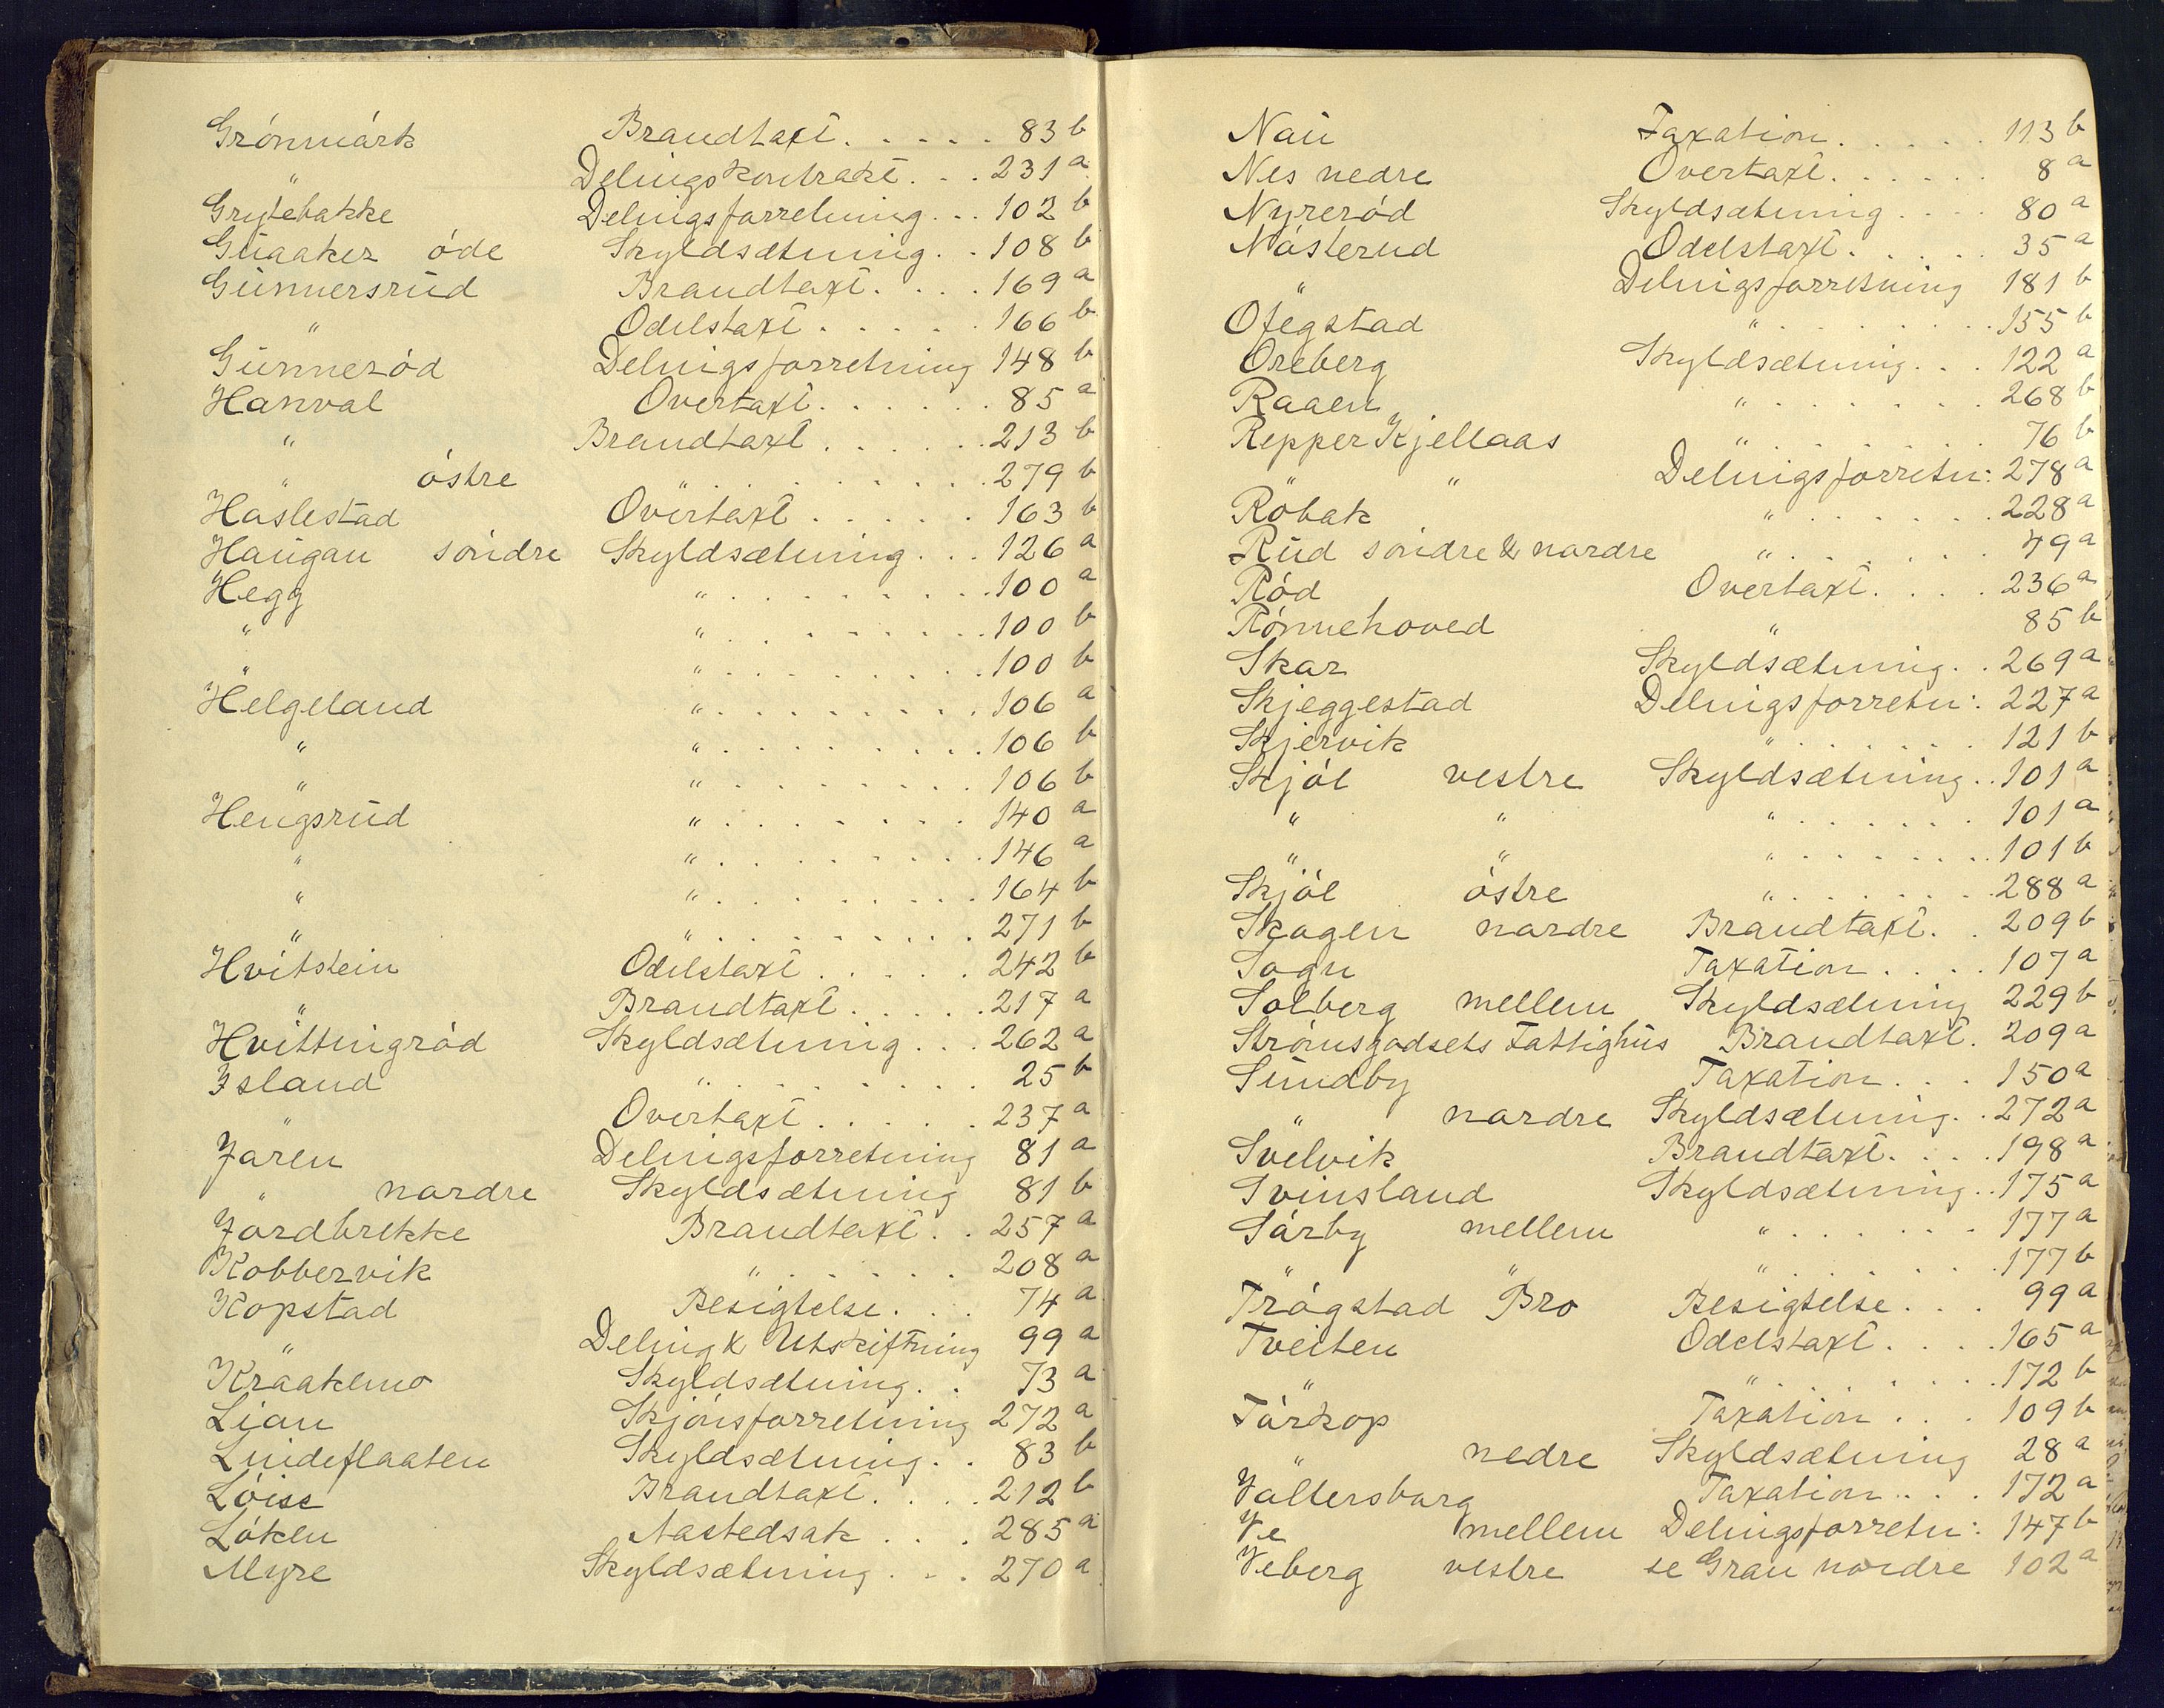 Grónmárk Brandtaxt. . . . . 83 b
" Delingskontrakt. . . 231 a
Grytebakke Delingsforretning. . . 102 b
Guaaker óde Skyldsætning. . 108 b
Gunnersrud Brandtaxt. . . . 169 a
" Odelstaxt . . . . . 166 b
Gunneród Delingsforretning 148 b
Hanval Overtaxt. . . . . . 85 a
" Brandtaxt . . . . . 213 b
" óstre " . . . . . . . . 279 b
Haslestad Overtaxt . . . . . 163 b
Haugan sóndre Skyldsætning. . . 126 a
Hegg " . . . . . . . . 100 a
" " . . . . . . . . 100 b
" " . . . . . . . . 100 b
Helgeland " . . . . . . . . 106 a
" " . . . . . . . . 106 b
" " . . . . . . . . 106 b
Hengsrud " . . . . . . . 140 a
" " . . . . . . . . 146 a
" " . . . . . . . . 164 b
" " . . . . . . . . 271 b
Hvitstein Odelstaxt . . . . . 242 b
" Brandtaxt . . . . . 217 a
Hvittingród Skyldsætning . . . 262 a
Island " . . . . . . . . 25 b
" Overtaxt . . . . . 237 a
Jaren Delingsforretning 81 a
" nordre Skyldsætning 81 b
Jordbrekke Brandtaxt. . . 257 a
Kobbervik " . . . . . . 208 a
Kopstad Besigtelse. . . 74 a
" Deling & Utskiftning 99 a
Kraakemo Skyldsætning. . 73 a
Lian Skjónsforretning 272 a
Lindeflaaten Skyldsætning. . 83 b
Lóise Brandtaxt. . . . 212 b
Lóken Aastedsak . . . 285 a
Myre Skyldsætning. . . 270 a
Nau Taxation. . . . . 113 b
Nes nedre Overtaxt. . . . . . 8 a
Nyreród Skyldsætning. . . . 80 a
Nósterud Odelstaxt. . . . . 35 a
" Delingsforretning 181 b
Ofegstad " . . . . . . . . 155 b
Oreberg Skyldsætning. . . 122 a
Raaen " . . . . . . . 268 b
Repper Kjellaas " . . . . . . . 76 b
" " Delingsforretn: 278 a
Róbak " . . . . . . 228 a
Rud sóndre & nordre " . . . . . . 49 a
Ród Overtaxt. . . . 236 a
Rónnehoved " 85 b
Skar Skyldsætning. . 269 a
Skjeggestad Delingsforretn: 227 a
Skjervik " . . . . . . 121 b
Skjól vestre Skyldsætning. . 101 a
" " " . . . . . . 101 a
" " " . . . . . . . 101 b
Skjól óstre " . . . . . . . 288 a
Skogen nordre Brandtaxt. . 209 b
Sogn Taxation . . . . 107 a
Solberg mellem Skyldsætning 229 b
Strómsgodsets Fattighus Brandtaxt. 209 a
Sundby Taxation . . . 150 a
" nordre Skyldsætning. . 272 a
Svelvik Brandtaxt. . . . 198 a
Svinsland Skyldsætning. . 175 a
Sórby mellem " . . . . . . 177 a
" " " . . . . . . 177 b
Trógstad Bro Besigtelse . . . 99 a
Tveiten Odelstaxt . . . . 165 a
" " . . . . . . . 172 b
Tórkop Taxation . . . 109 b
" nedre Skyldsætning 28 a
Vallersborg Taxation. . . 172 a
Ve mellem Delingsforretn: 147 b
Veberg vestre se Gran nordre 102 a